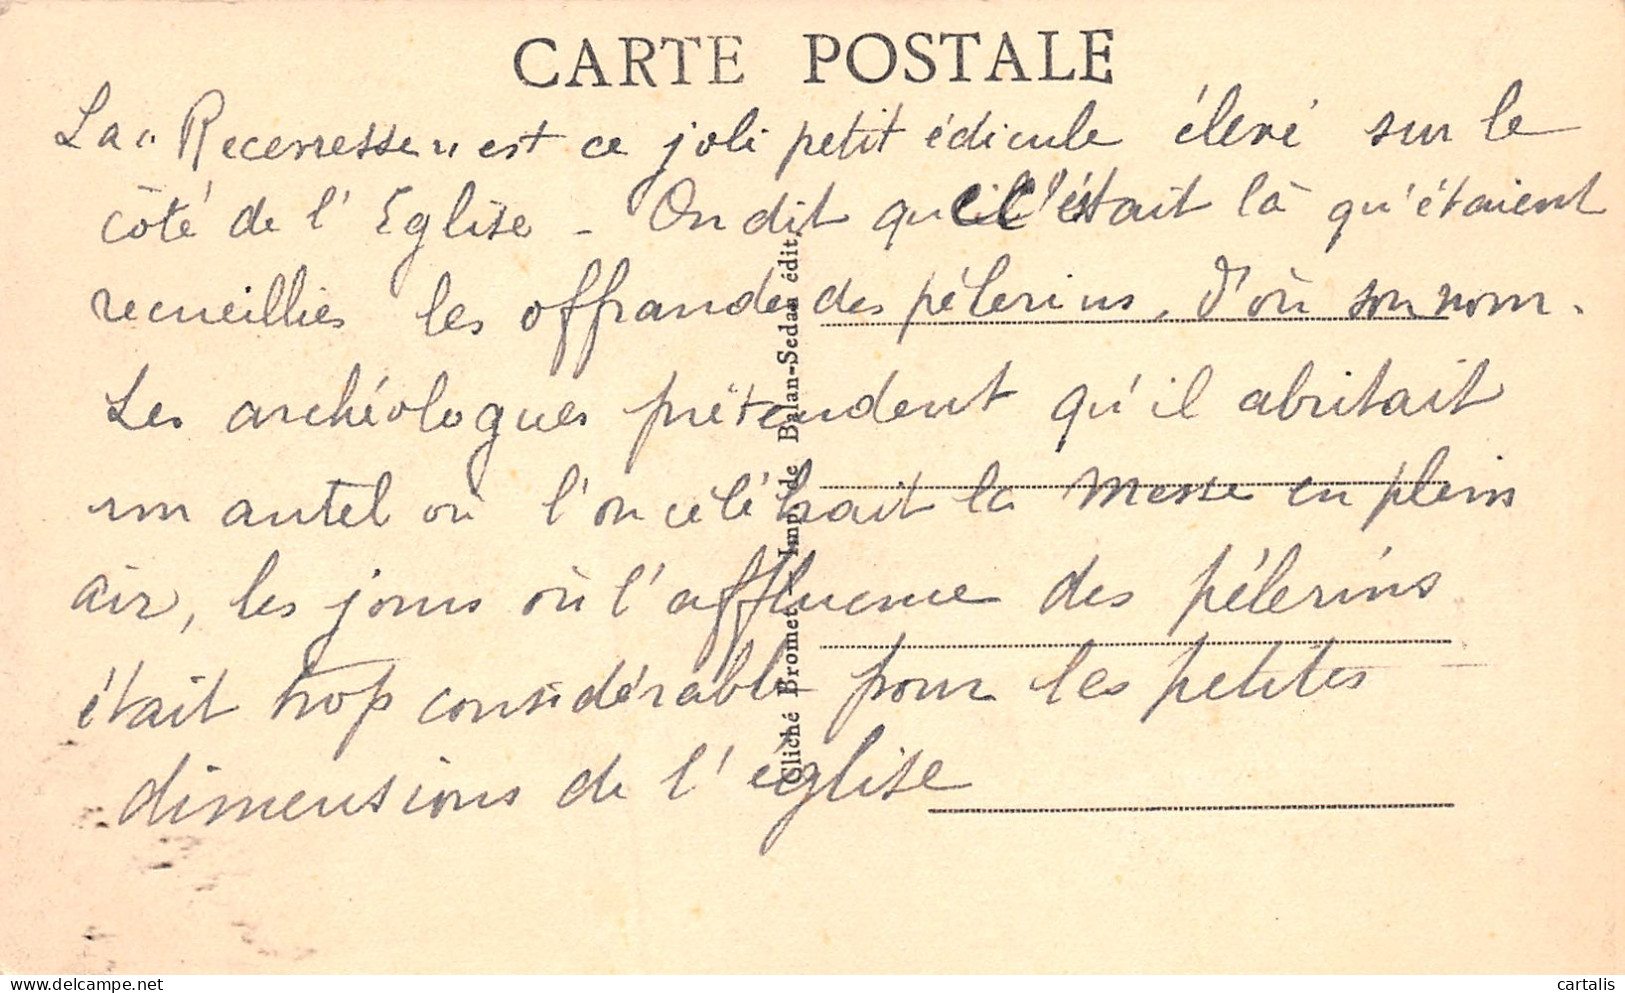 CARTE POSTALE
La "Receveresse" est ce joli petit édicule élevé sur le
côté de l'Eglise - On dit que c'était là qu'étaient
recueillies les offrandes des pélerins, d'où son nom.
Les archéologues prétendent qu'il abritait
un autel où l'on célébrait la Messe en plein
air, les jours où l'affluence des pélerins
était trop considérable pour les petites
dimensions de l'église
Cliché Bromet - Imp. de Balan-Sedan édit.
delcampe.net
cartalis